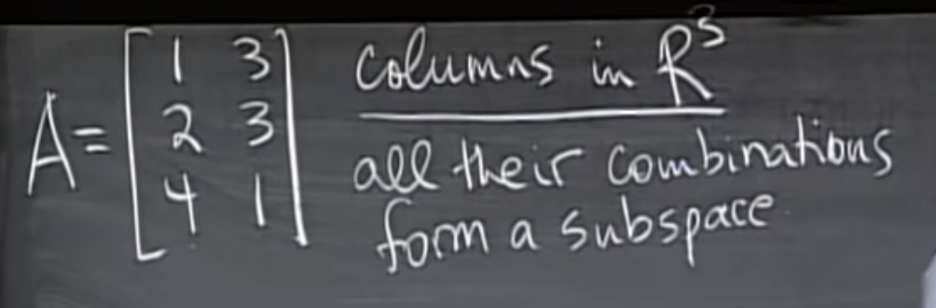 A = [1 3
2 3
4 1]
columns in R³
all their combinations
form a subspace